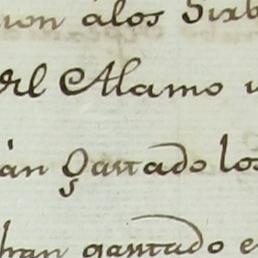 ion álos Sirb
del Alamo
án Gastado los
han gastado e